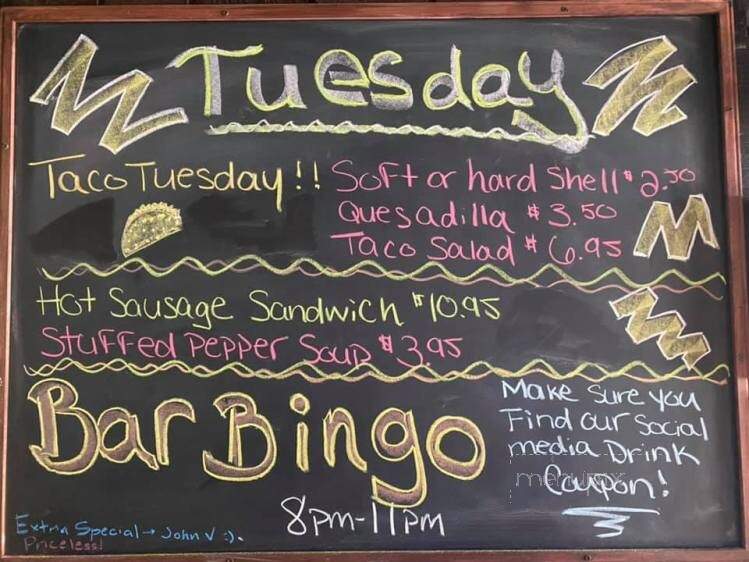 Tuesday
Taco Tuesday!! Soft or hard Shell $2.50
Quesadilla $3.50
Taco Salad $6.95
Hot Sausage Sandwich $10.95
Stuffed Pepper Soup $3.95
Bar Bingo
8pm-11pm
Make sure you
Find our social
media Drink
Coupon!
menupix
Extra Special → John V :).
Priceless!